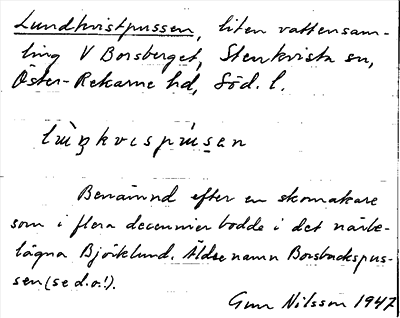 Lundkvistpussen, liten vattensam-
ling V Borsberget, Stenkvista sn,
Öster-Rekarne hd, Söd. l.
lùṇkvıspúsen
Benämnd efter en skomakare
som i flera decennier bodde i det närbe-
lägna Björklund. Äldre namn Borsbackspus-
sen (se d.o.!).
Gun Nilsson 1947